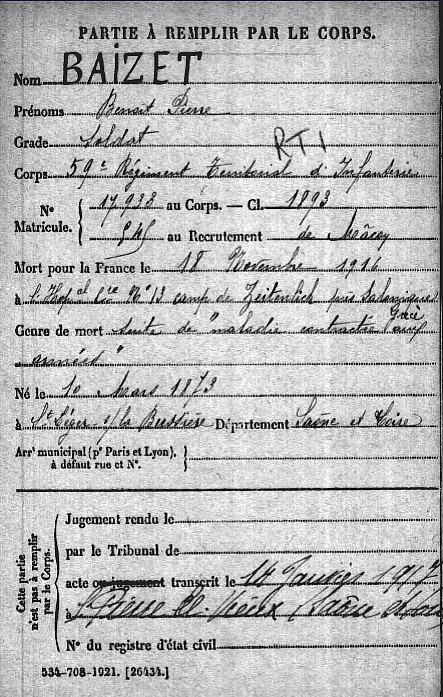 PARTIE À REMPLIR PAR LE CORPS.
Nom BAIZET
Prénoms Benoit Pierre
Grade Soldat
RTI
Corps 59e Régiment Territorial d'Infanterie
Nº Matricule. { 17.933 au Corps. — Cl. 1893
545 au Recrutement de Mâcon
Mort pour la France le 18 Novembre 1916
à l'Hopal Nº 13 camp de Zeitenlick près Salonique
Grèce
Genre de mort suite de "maladie contractée aux
armées"
Né le 10 Mars 1873
à St Léger s/ la Bussière Département Saône et Loire
Arrt municipal (pr Paris et Lyon), à défaut rue et Nº. {
Cette partie n'est pas à remplir par le Corps. { Jugement rendu le
par le Tribunal de
acte ou jugement transcrit le 14 Janvier 1917
à St Pierre le Vieux Saône
Nº du registre d'état civil
534-708-1921. [26434.]